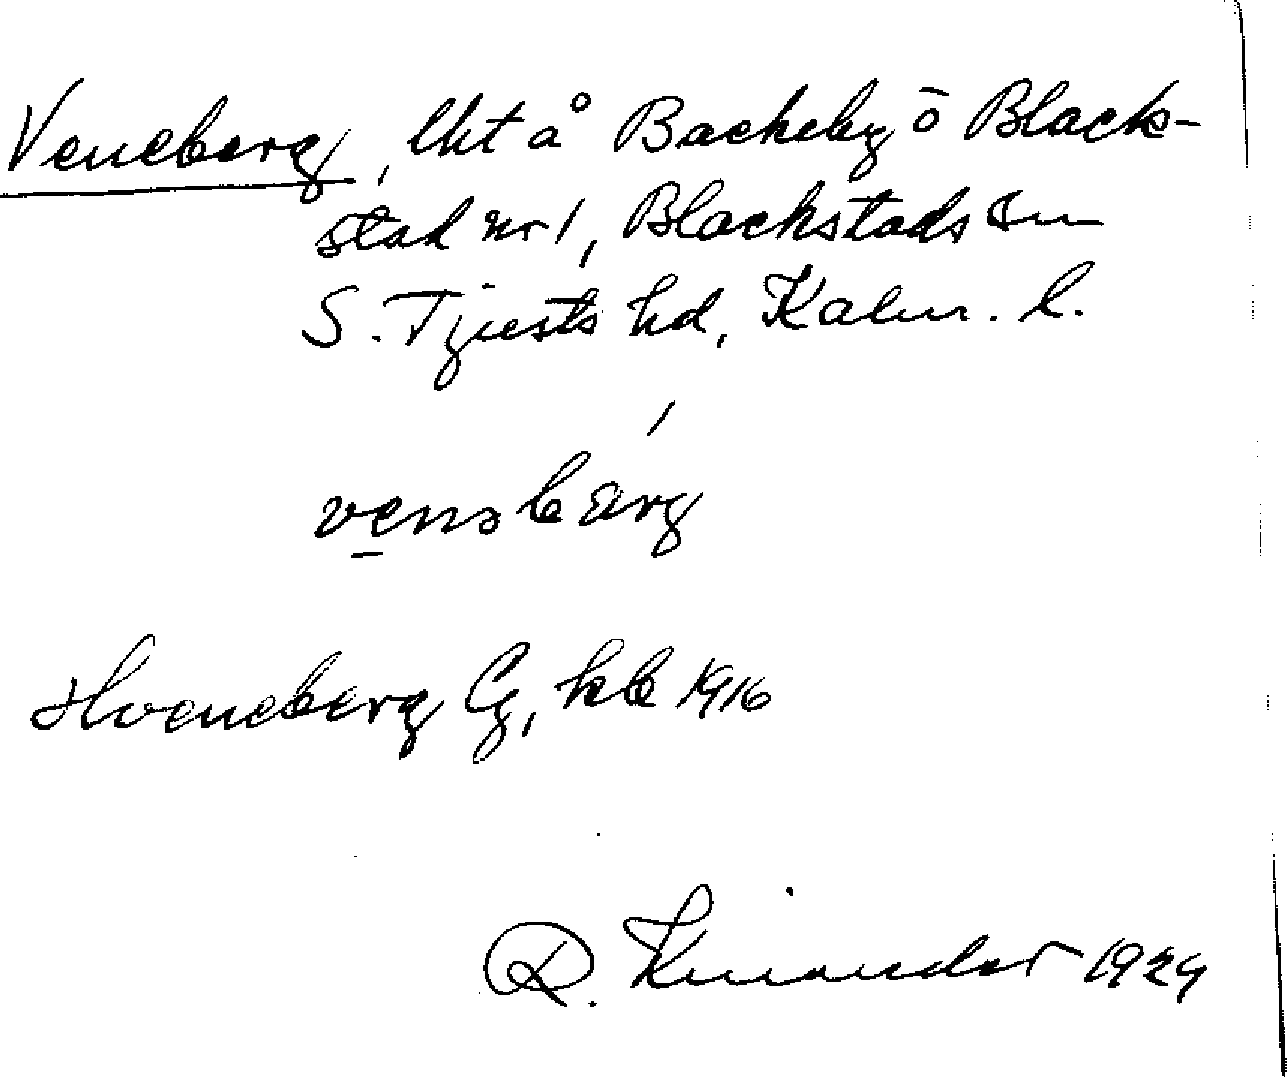 Veneberg, lht å Backeby o Black-
stad nr 1, Blackstads sn
S. Tjusts hd, Kalm. l.
venəbärg
Hveneberg Cg, kb 1916
R. Kinander 1929